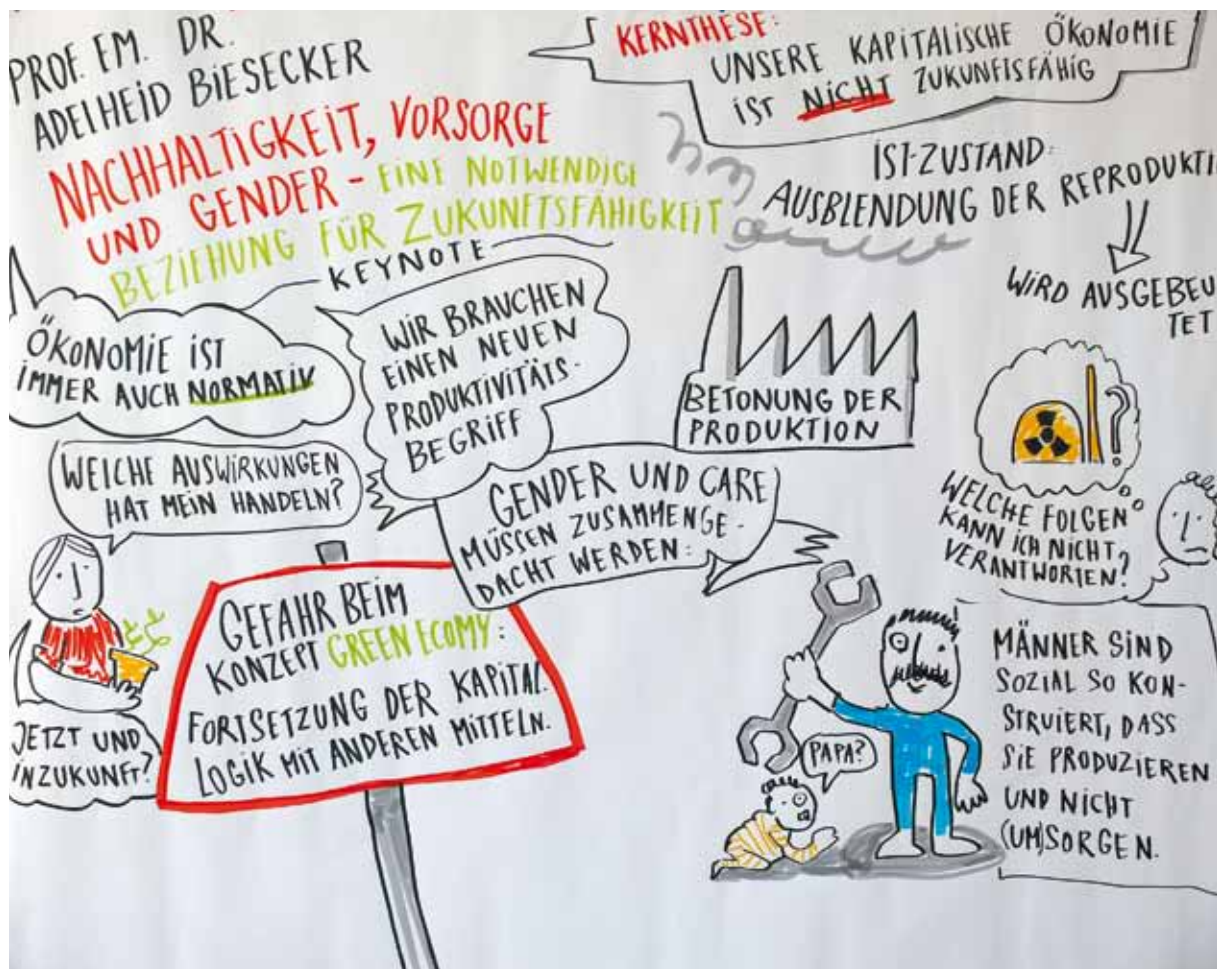 PROF. EM. DR.
ADELHEID BIESECKER
NACHHALTIGKEIT, VORSORGE
UND GENDER - EINE NOTWENDIGE
BEZIEHUNG FÜR ZUKUNFTSFÄHIGKEIT
KEYNOTE
KERNTHESE:
UNSERE KAPITALISCHE ÖKONOMIE
IST NICHT ZUKUNFTSFÄHIG
IST-ZUSTAND:
AUSBLENDUNG DER REPRODUKTI
WIRD AUSGEBEU
TET
ÖKONOMIE IST
IMMER AUCH NORMATIV
WIR BRAUCHEN
EINEN NEUEN
PRODUKTIVITÄTS-
BEGRIFF
BETONUNG DER
PRODUKTION
WELCHE AUSWIRKUNGEN
HAT MEIN HANDELN?
JETZT UND
IN ZUKUNFT?
GENDER UND CARE
MÜSSEN ZUSAMMENGE-
DACHT WERDEN:
?
WELCHE FOLGEN
KANN ICH NICHT
VERANTWORTEN?
GEFAHR BEIM
KONZEPT GREEN ECOMY:
FORTSETZUNG DER KAPITAL-
LOGIK MIT ANDEREN MITTELN.
PAPA?
MÄNNER SIND
SOZIAL SO KON-
STRUIERT, DASS
SIE PRODUZIEREN
UND NICHT
(UM)SORGEN.